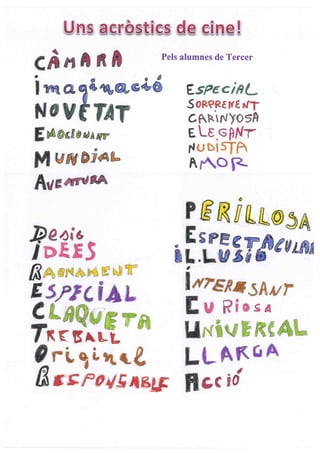 Uns acròstics de cine!
Pels alumnes de Tercer
CÀMARA
imaginació
NOVETAT
EMOCIONANT
MUNDIAL
AVENTURA
ESPECIAL
SORPRENENT
CARINYOSA
ELEGANT
NUDISTA
AMOR
Desig
iDEES
RAONAMENT
ESPECIAL
CLAQUETA
TREBALL
Original
RESPONSABLE
PERILLOSA
ESPECTACULAR
iL.LUSIÓ
INTERESSANT
CURIOSA
UNIVERCAL
LLARGA
ACCIÓ